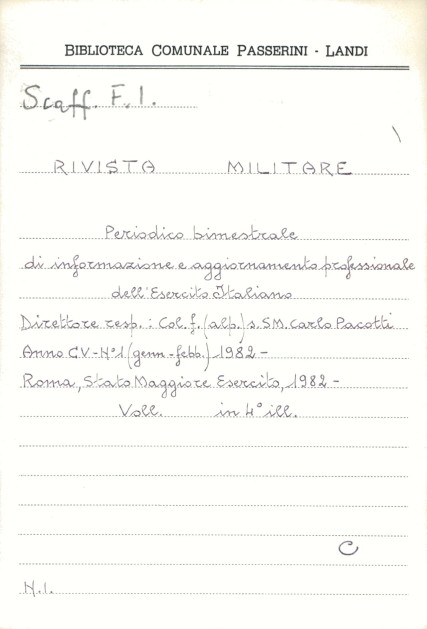 BIBLIOTECA COMUNALE PASSERINI - LANDI
Scaff. F. I.
\
RIVISTA MILITARE
Periodico bimestrale
di informazione e aggiornamento professionale
dell'Esercito Italiano
Direttore resp.: Col. f. (alp.) s. SM. Carlo Pacotti
Anno CV - N° 1 (genn.-febb.) 1982 -
Roma, Stato Maggiore Esercito, 1982 -
Voll. in 4° ill.
C
N.I.